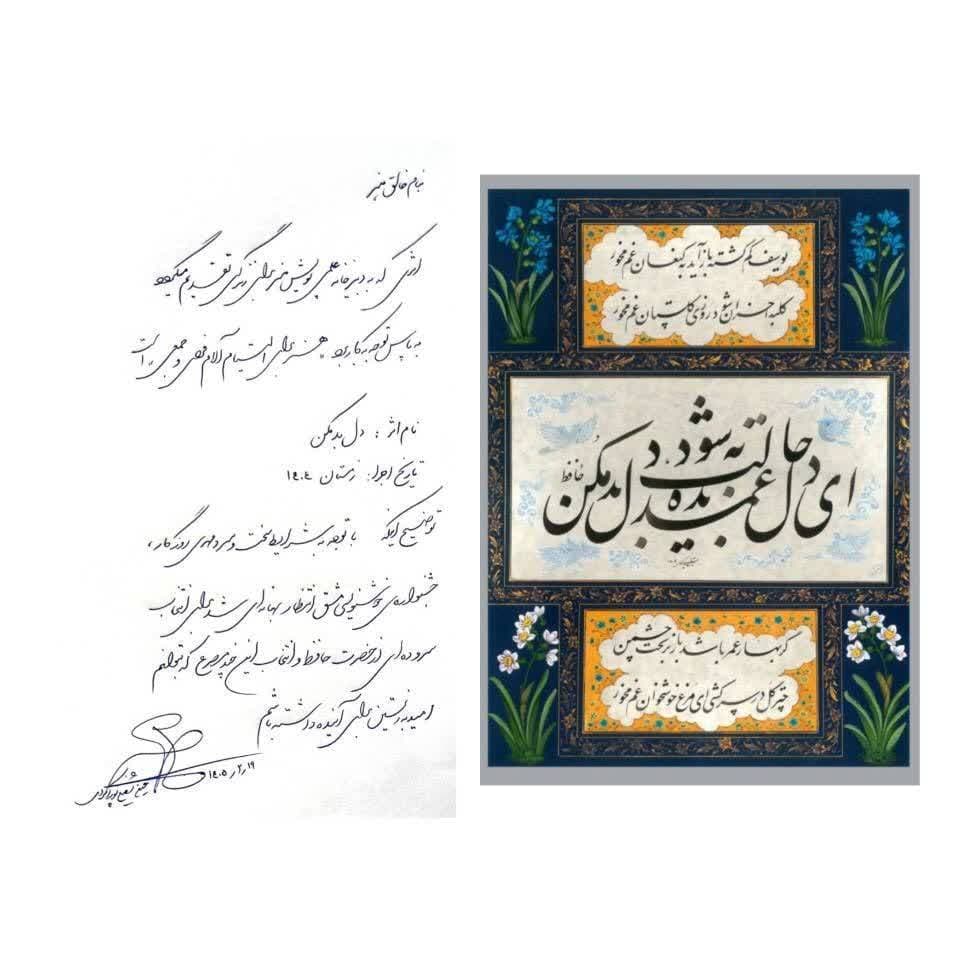 بنام خالق هنر
اثری که به دبیرخانه علمی پویش هنر برای زندگی تقدیم میگردد
به پاس توجه به کاربرد هنر برای التیام آلام فردی و جمعی است
نام اثر : دل بد مکن
تاریخ اجرا : زمستان ۱۴۰۴
توضیح اینکه با توجه به شرایط سخت و روزگار ،
جشنواره‌ی خوشنویسی مشق انتظار بهانه‌ای شد برای انتخاب
سروده‌ای از حضرت حافظ و انتخاب این چند مصرع که بتوانم
امید به زیستن برای آینده داشته باشم
۱۴۰۵/۲/۱۹
یوسف گم گشته باز آید به کنعان غم مخور
کلبه احزان شود روزی گلستان غم مخور
ای دل غمدیده حالت به شود دل بد مکن
حافظ
گر بهار عمر باشد باز بر تخت چمن
چتر گل در سر کشی ای مرغ خوشخوان غم مخور